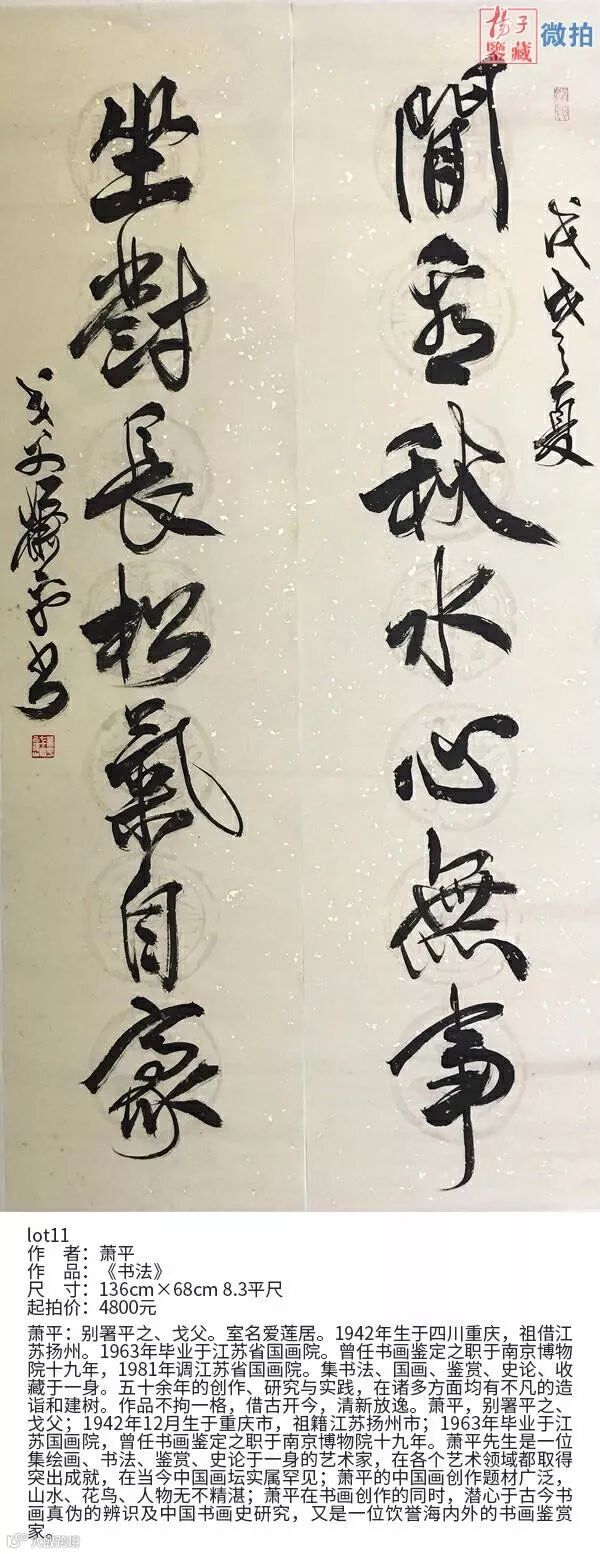 揚子
鑒藏
微拍
戊戌之夏
閒看秋水心無事
坐對長松氣自豪
戈父蕭平书
lot11
作 者：萧平
作 品：《书法》
尺 寸：136cm×68cm 8.3平尺
起拍价：4800元
萧平：别署平之、戈父。室名爱莲居。1942年生于四川重庆，祖借江
苏扬州。1963年毕业于江苏省国画院。曾任书画鉴定之职于南京博物
院十九年，1981年调江苏省国画院。集书法、国画、鉴赏、史论、收
藏于一身。五十余年的创作、研究与实践，在诸多方面均有不凡的造
诣和建树。作品不拘一格，借古开今，清新放逸。萧平，别署平之、
戈父；1942年12月生于重庆市，祖籍江苏扬州市；1963年毕业于江
苏国画院，曾任书画鉴定之职于南京博物院十九年。萧平先生是一位
集绘画、书法、鉴赏、史论于一身的艺术家，在各个艺术领域都取得
突出成就，在当今中国画坛实属罕见；萧平的中国画创作题材广泛，
山水、花鸟、人物无不精湛；萧平在书画创作的同时，潜心于古今书
画真伪的辨识及中国书画史研究，又是一位饮誉海内外的书画鉴赏
家。